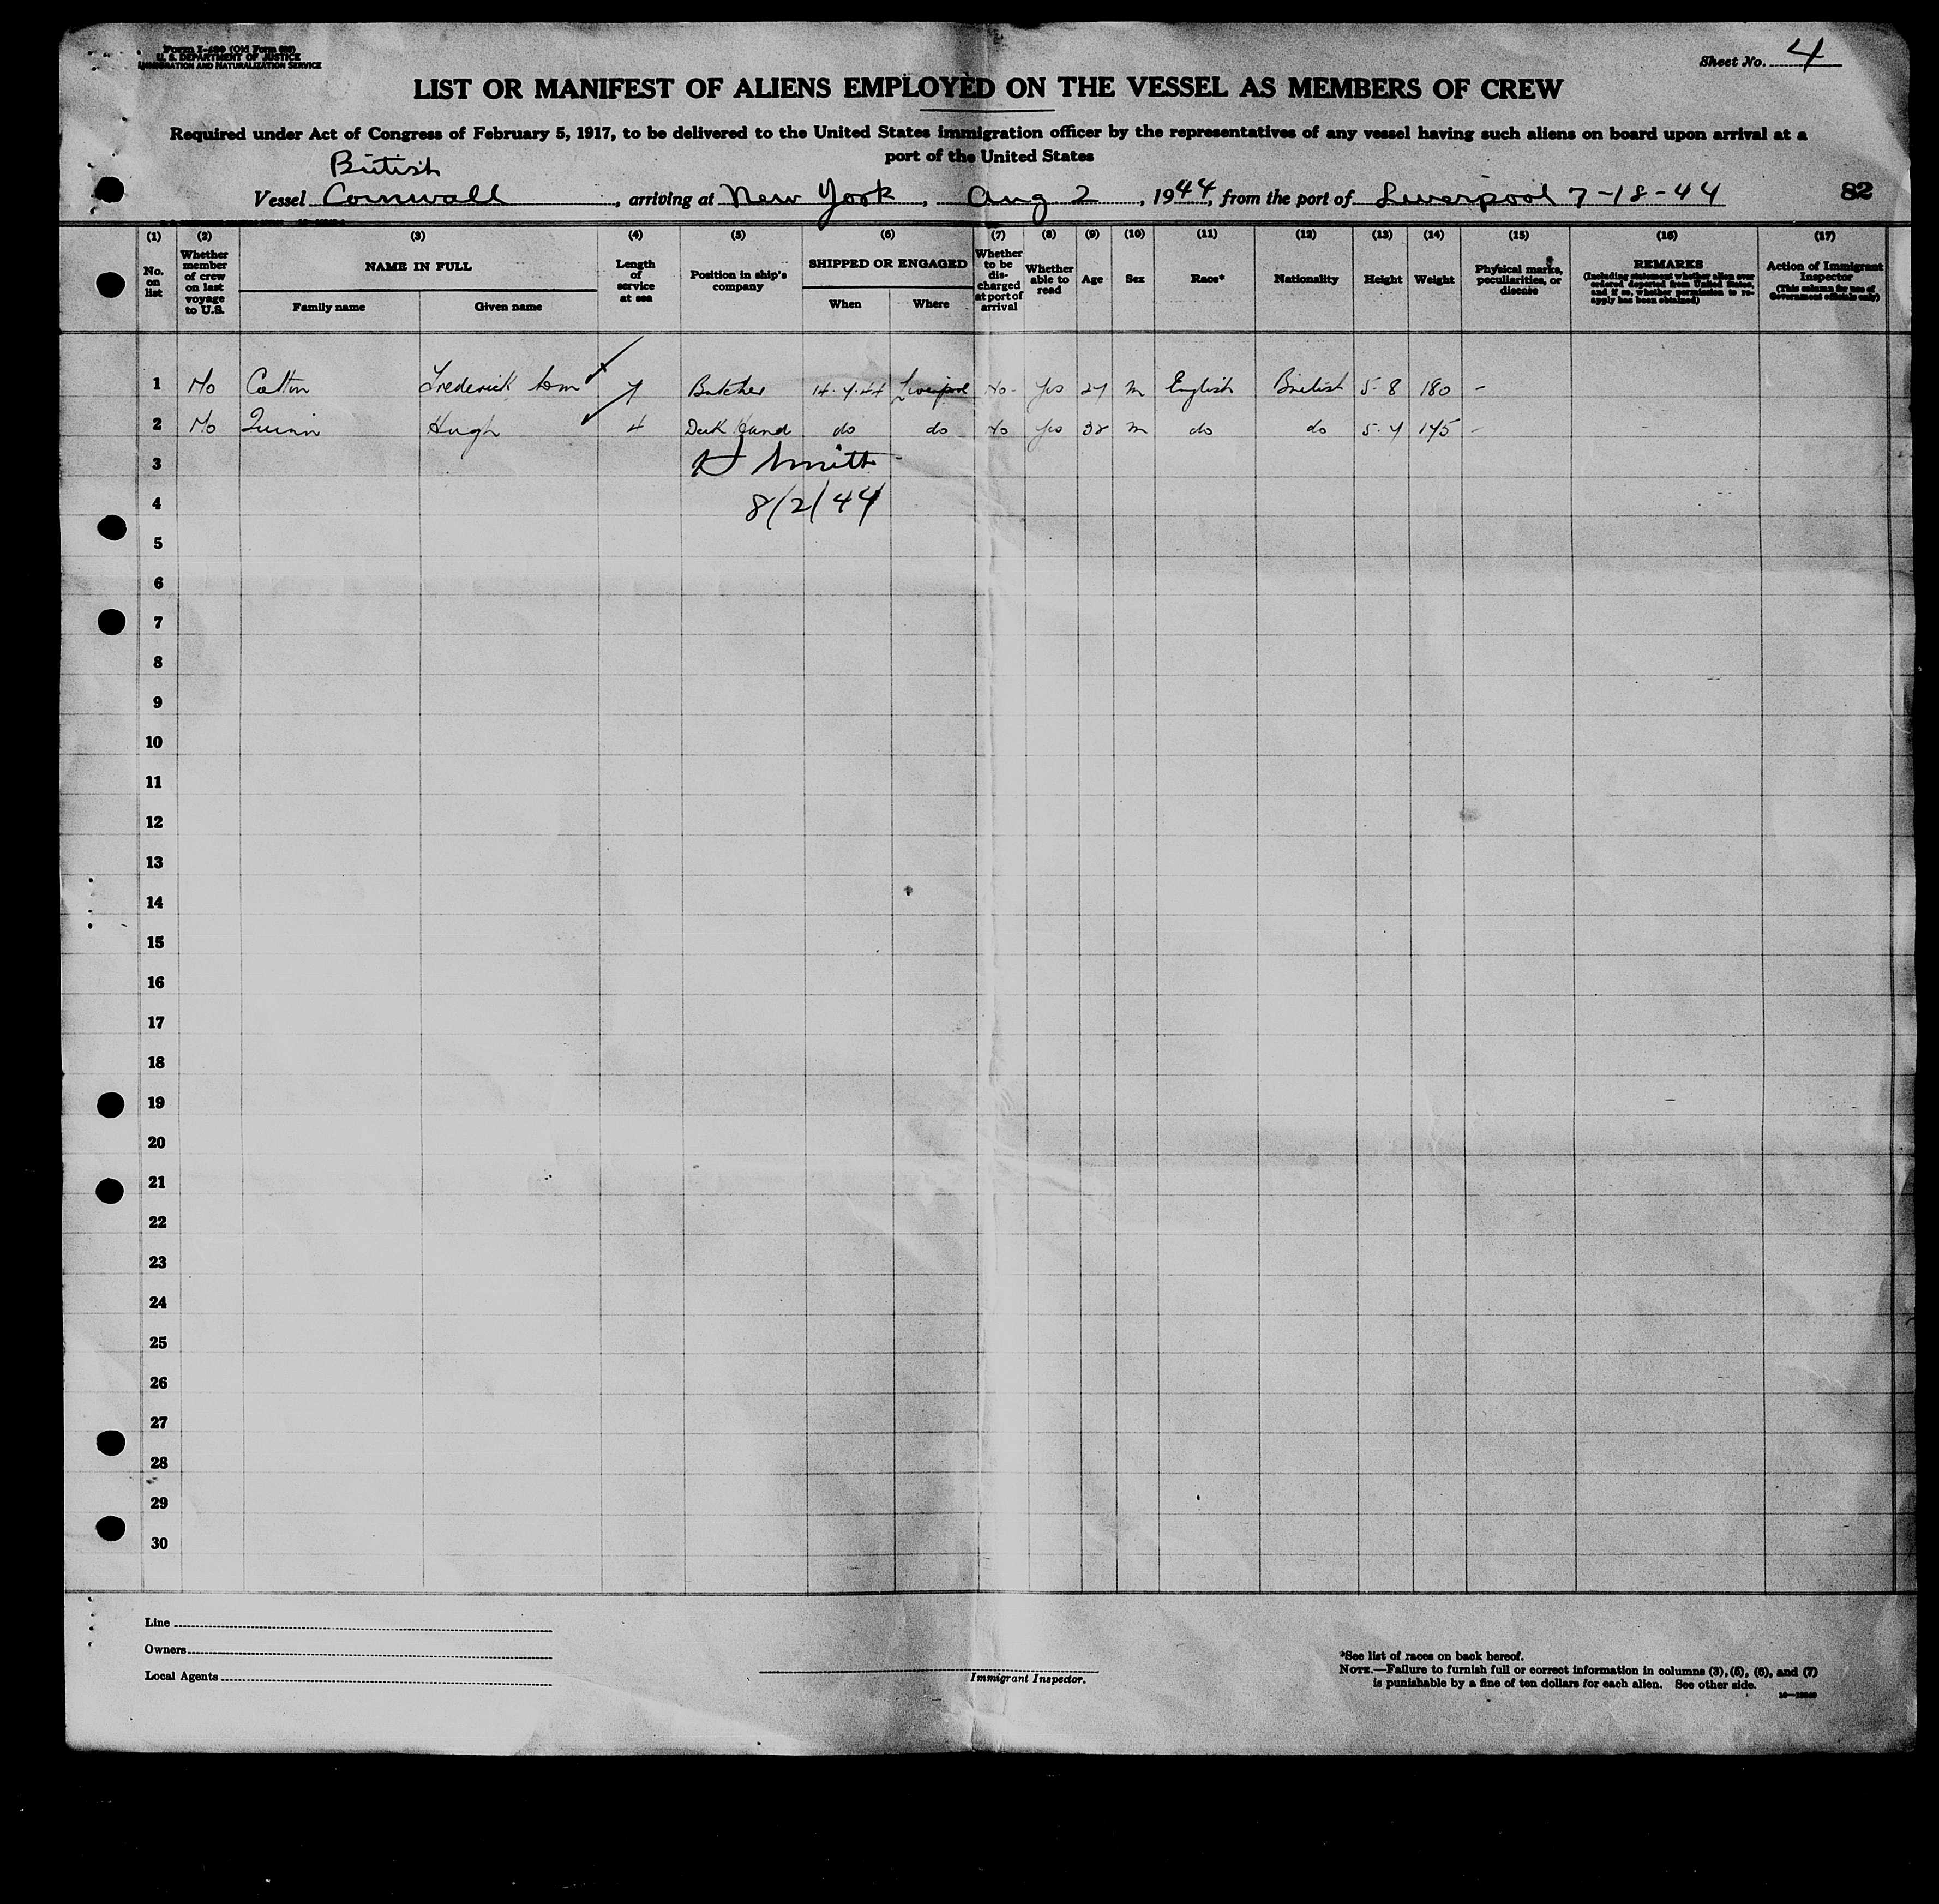 Form I-489 (Old Form 689)
U. S. DEPARTMENT OF JUSTICE
IMMIGRATION AND NATURALIZATION SERVICE
Sheet No. 4
LIST OR MANIFEST OF ALIENS EMPLOYED ON THE VESSEL AS MEMBERS OF CREW
Required under Act of Congress of February 5, 1917, to be delivered to the United States immigration officer by the representatives of any vessel having such aliens on board upon arrival at a
port of the United States
British
Vessel Cornwall, arriving at New York, Aug 2, 1944, from the port of Liverpool 7-18-44 82
(1) (2) (3) (4) (5) (6) (7) (8) (9) (10) (11) (12) (13) (14) (15) (16) (17)
No. on list
Whether member of crew on last voyage to U.S.
NAME IN FULL
Family name Given name
Length of service at sea
Position in ship's company
SHIPPED OR ENGAGED
When Where
Whether to be discharged at port of arrival
Whether able to read
Age
Sex
Race*
Nationality
Height
Weight
Physical marks, peculiarities, or disease
REMARKS
(Including statement whether alien ever ordered deported from United States, and if so, whether permission to reapply has been obtained)
Action of Immigrant Inspector
(This column for use of Government officials only)
1 No Frederick 7 Butcher 14.7.44 Liverpool No - Yes 27 M English British 5-8 180 -
2 No Quinn Hugh 4 Deck Hand do do No Yes M do do 5.7 -
3 Smith
4 8/2/44
5
6
7
8
9
10
11
12
13
14
15
16
17
18
19
20
21
22
23
24
25
26
27
28
29
30
Line
Owners
Local Agents
Immigrant Inspector.
*See list of races on back hereof.
NOTE.—Failure to furnish full or correct information in columns (3), (5), (6), and (7)
is punishable by a fine of ten dollars for each alien. See other side.